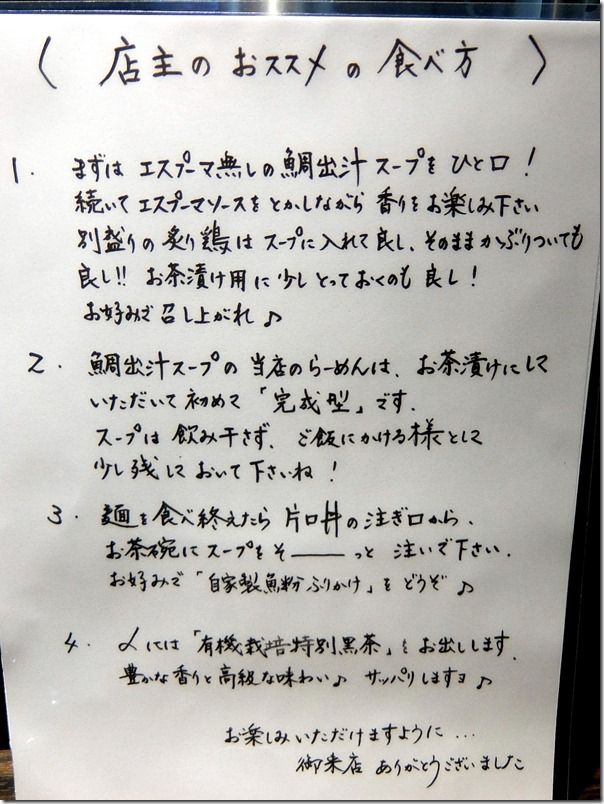 〈 店主の おススメ の 食べ方 〉
1. まずは エスプーマ無しの鯛出汁 スープを ひと口!
続いて エスプーマソースを とかしながら 香りをお楽しみ下さい
別盛りの炙り鶏は スープに入れて良し、そのままかぶりついても
良し!! お茶漬け用に少しとっておくのも 良し!
お好みで召し上がれ♪
2. 鯛出汁スープの 当店のらーめんは、お茶漬けにして
いただいて初めて「完成型」です.
スープは 飲み干さず、ご飯にかける様として
少し残しておいて下さいね!
3. 麺を食べ終えたら 片口丼の注ぎ口から、
お茶碗にスープをそ――っと 注いで下さい.
お好みで「自家製魚粉ふりかけ」を どうぞ♪
4. 〆には「有機栽培特別黒茶」を お出しします.
豊かな香りと高級な味わい♪ サッパリしますヨ♪
お楽しみいただけますように...
御来店 ありがとうございました